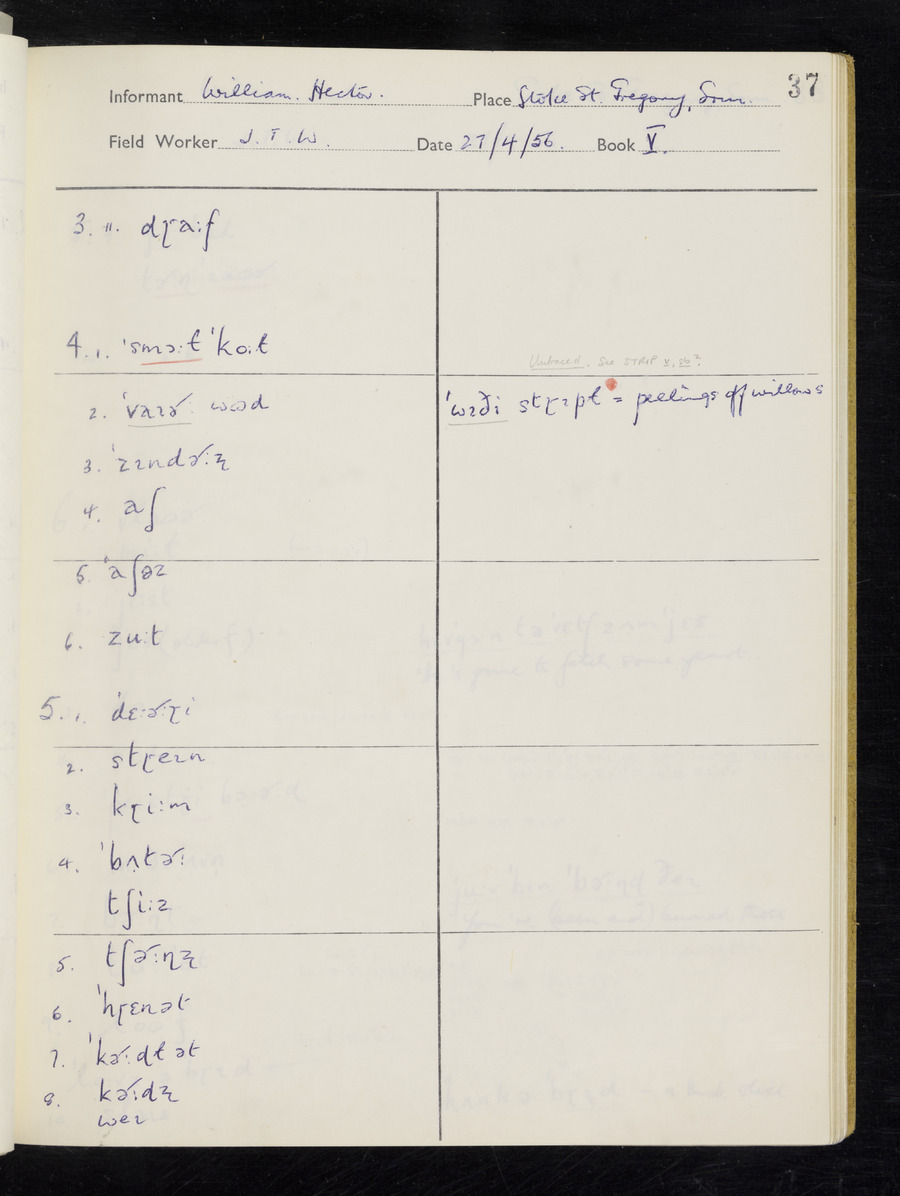 37
Informant William. Hector. Place Stoke St. Gregory, Som.
Field Worker J. T. W. Date 27/4/56. Book V.
3. ıı. dɽaːf
4. 1. ˈsmɔːt ˈkoːt
Untraced. See STRIP v, sb²
2. ˈvaɪɚ wʊd
ˈwɪði stɽɪpt = peelings off willows
3. ˈzɪndɚːʐ
4. aʃ
5. ˈaʃəz
6. zuːt
5. 1. ˈdɛːɚːɽi
2. stɽeɪn
3. kɽiːm
4. ˈbʌtɚː
tʃiːz
5. tʃɚːɳʐ
6. ˈhɽɛnət
7. ˈkɚːɖt ət
8. kɚːdʐ
weɪ